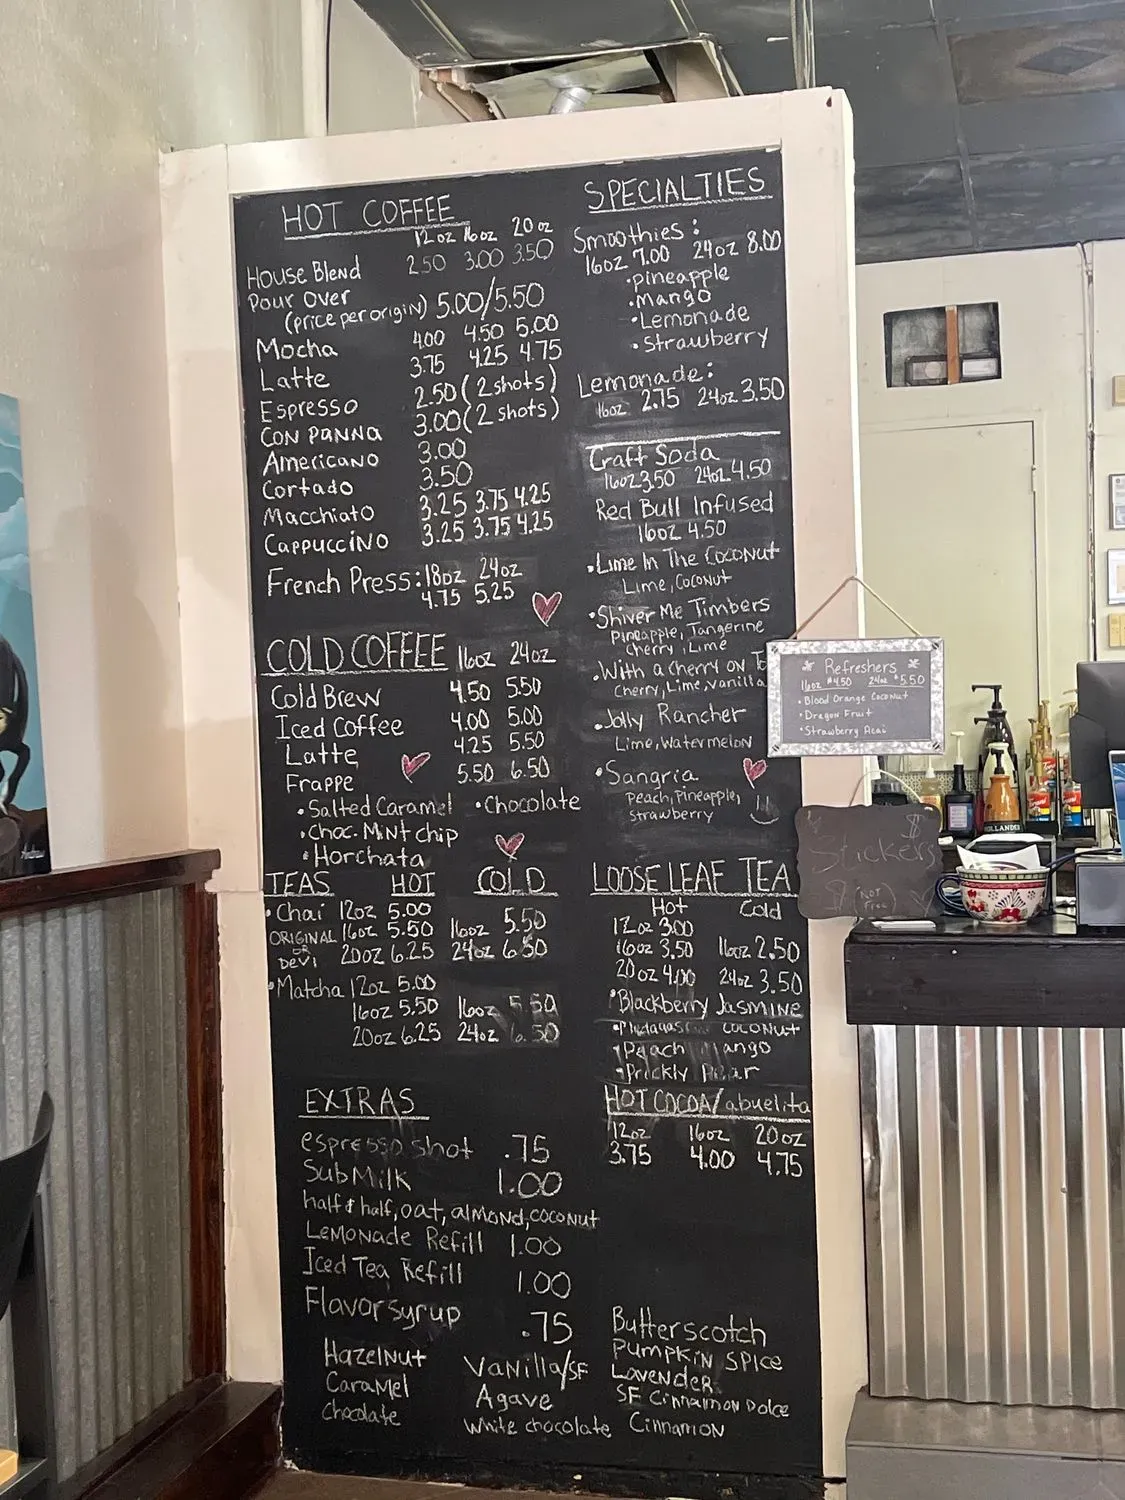 HOT COFFEE
12oz 16oz 20oz
House Blend 2.50 3.00 3.50
Pour Over
(price per origin) 5.00/5.50
Mocha 4.00 4.50 5.00
Latte 3.75 4.25 4.75
Espresso 2.50 (2 shots)
CON PANNA 3.00 (2 shots)
Americano 3.00
Cortado 3.50
Macchiato 3.25 3.75 4.25
Cappuccino 3.25 3.75 4.25
French Press: 18oz 24oz
4.75 5.25
COLD COFFEE 16oz 24oz
Cold Brew 4.50 5.50
Iced Coffee 4.00 5.00
Latte 4.25 5.50
Frappe 5.50 6.50
• Salted Caramel • Chocolate
• Choc. Mint chip
• Horchata
TEAS HOT COLD
• Chai 12oz 5.00
ORIGINAL 16oz 5.50 16oz 5.50
OR
DEVI 20oz 6.25 24oz 6.50
• Matcha 12oz 5.00
16oz 5.50 16oz 5.50
20oz 6.25 24oz 6.50
EXTRAS
espresso shot .75
Sub Milk 1.00
half & half, oat, almond, coconut
Lemonade Refill 1.00
Iced Tea Refill 1.00
Flavor syrup .75
Hazelnut
Caramel
Chocolate
Vanilla/SF
Agave
White chocolate
Butterscotch
Pumpkin Spice
Lavender
SF Cinnamon Dolce
Cinnamon
SPECIALTIES
Smoothies:
16oz 7.00 24oz 8.00
• pineapple
• Mango
• Lemonade
• Strawberry
Lemonade:
16oz 2.75 24oz 3.50
Craft Soda
16oz 3.50 24oz 4.50
Red Bull Infused
16oz 4.50
• Lime In The Coconut
Lime, Coconut
• Shiver Me Timbers
Pineapple, Tangerine
Cherry, Lime
• With a Cherry on
Cherry, Lime, Vanilla
• Jolly Rancher
Lime, Watermelon
• Sangria
Peach, Pineapple,
strawberry
LOOSE LEAF TEA
Hot Cold
12oz 3.00
16oz 3.50 16oz 2.50
20oz 4.00 24oz 3.50
• Blackberry Jasmine
coconut
• Peach Mango
• Prickly Pear
HOT COCOA/abuelita
12oz 16oz 20oz
3.75 4.00 4.75
Refreshers
16oz $4.50 24oz $5.50
• Blood Orange Coconut
• Dragon Fruit
• Strawberry Acai
$
Stickers
(NOT
Free)
HOLLANDER